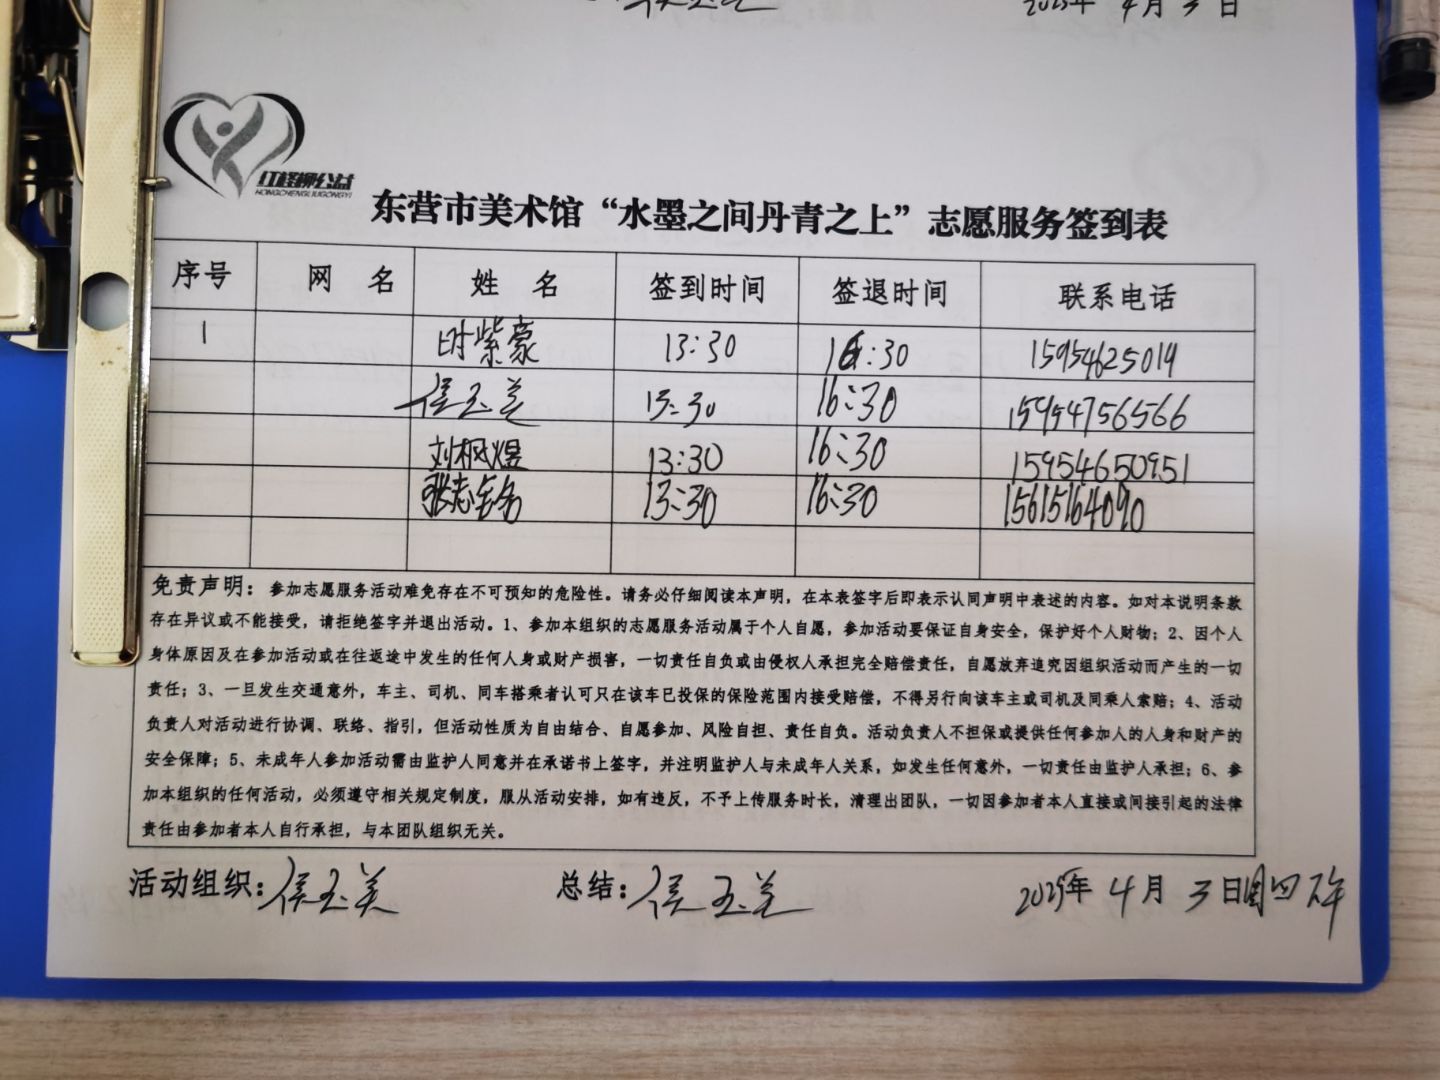 2025年 4月 3日
红柽柳公益
HONGCHENGLIUGONGYI
东营市美术馆“水墨之间丹青之上”志愿服务签到表
序号 网 名 姓 名 签到时间 签退时间 联系电话
1 时紫蒙 13:30 16:30 15954625019
侯玉美 13:30 16:30 15954756566
刘枫煜 13:30 16:30 15954650951
张志铭 13:30 16:30 15615164090
免责声明：参加志愿服务活动难免存在不可预知的危险性。请务必仔细阅读本声明，在本表签字后即表示认同声明中表述的内容。如对本说明条款
存在异议或不能接受，请拒绝签字并退出活动。1、参加本组织的志愿服务活动属于个人自愿，参加活动要保证自身安全，保护好个人财物；2、因个人
身体原因及在参加活动或在往返途中发生的任何人身或财产损害，一切责任自负或由侵权人承担完全赔偿责任，自愿放弃追究因组织活动而产生的一切
责任；3、一旦发生交通意外，车主、司机、同车搭乘者认可只在该车已投保的保险范围内接受赔偿，不得另行向该车主或司机及同乘人索赔；4、活动
负责人对活动进行协调、联络、指引，但活动性质为自由结合、自愿参加、风险自担、责任自负。活动负责人不担保或提供任何参加人的人身和财产的
安全保障；5、未成年人参加活动需由监护人同意并在承诺书上签字，并注明监护人与未成年人关系，如发生任何意外，一切责任由监护人承担；6、参
加本组织的任何活动，必须遵守相关规定制度，服从活动安排，如有违反，不予上传服务时长，清理出团队，一切因参加者本人直接或间接引起的法律
责任由参加者本人自行承担，与本团队组织无关。
活动组织：侯玉美 总结：侯玉美 2025年 4月 3日周四下午